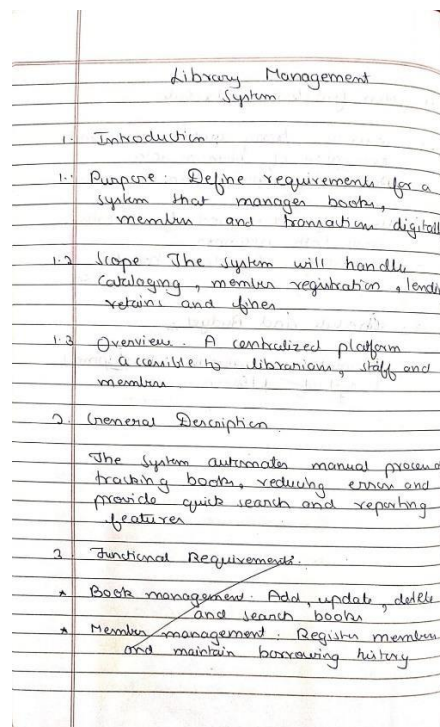 Library Management
System
1. Introduction :
1. Purpose : Define requirements for a
system that manages books,
members and transaction digitall
1.2 Scope The system will handle
Cataloging, member registration, lendi
retains and fines
1.3 Overview . A centralized platform
accessible to librarians, staff and
members
2. General Description .
The system automates manual process o
tracking books, reducing errors and
provide quick search and reporting
features
3. Functional Requirements.
* Book management . Add, update, delete
and search books
* Member management : Register members
and maintain borrowing history